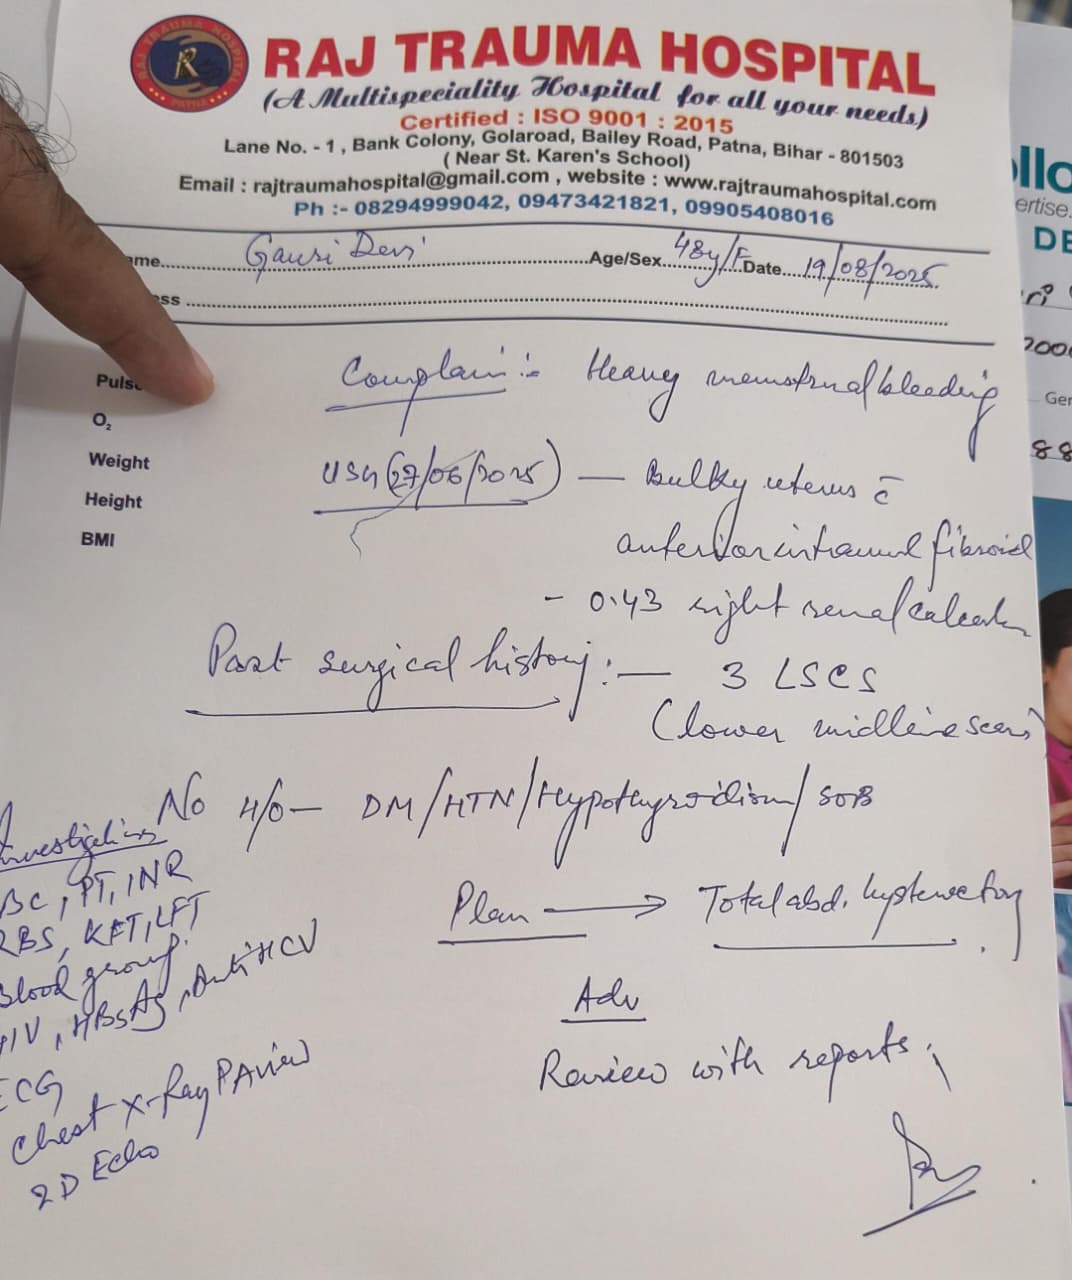 RAJ TRAUMA HOSPITAL
(A Multispeciality Hospital for all your needs)
Certified : ISO 9001 : 2015
Lane No. - 1, Bank Colony, Golaroad, Bailey Road, Patna, Bihar - 801503
( Near St. Karen's School)
Email : rajtraumahospital@gmail.com , website : www.rajtraumahospital.com
Ph :- 08294999042, 09473421821, 09905408016
ame Gauri Devi Age/Sex 48y/F Date 19/08/2025
ss
Complain :- Heavy menstrual bleeding
Puls
O₂
Weight
Height
BMI
USG (27/06/2025) — Bulky uterus c̄
anterior intramural fibroid
- 0.43 right renal
Past surgical history :— 3 LSCS
(lower midline scar)
No H/o — DM/HTN/Hypothyroidism/SOB
Investigations
BC, PT, INR
RBS, KFT, LFT
Blood group
HIV, HBsAg, Anti HCV
ECG
Chest X-Ray PA view
2D Echo
Plan → Total abd. hysterectomy.
Adv
Review with reports.
ollo
ertise.
DE
ri
200
Ger
88